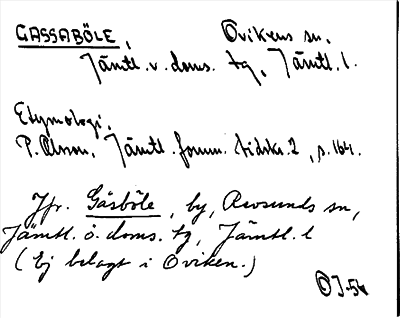 GASSABÖLE, Ovikens sn,
Jämtl. v. doms. tg, Jämtl. l.
Etymologi.
P. Olsson, Jämtl. fornm. tidskr. 2, s. 164.
Jfr. Gåsböle, by, Revsunds sn,
Jämtl. ö. doms. tg, Jämtl. l
(Ej belagt i Oviken.)
OJ-54